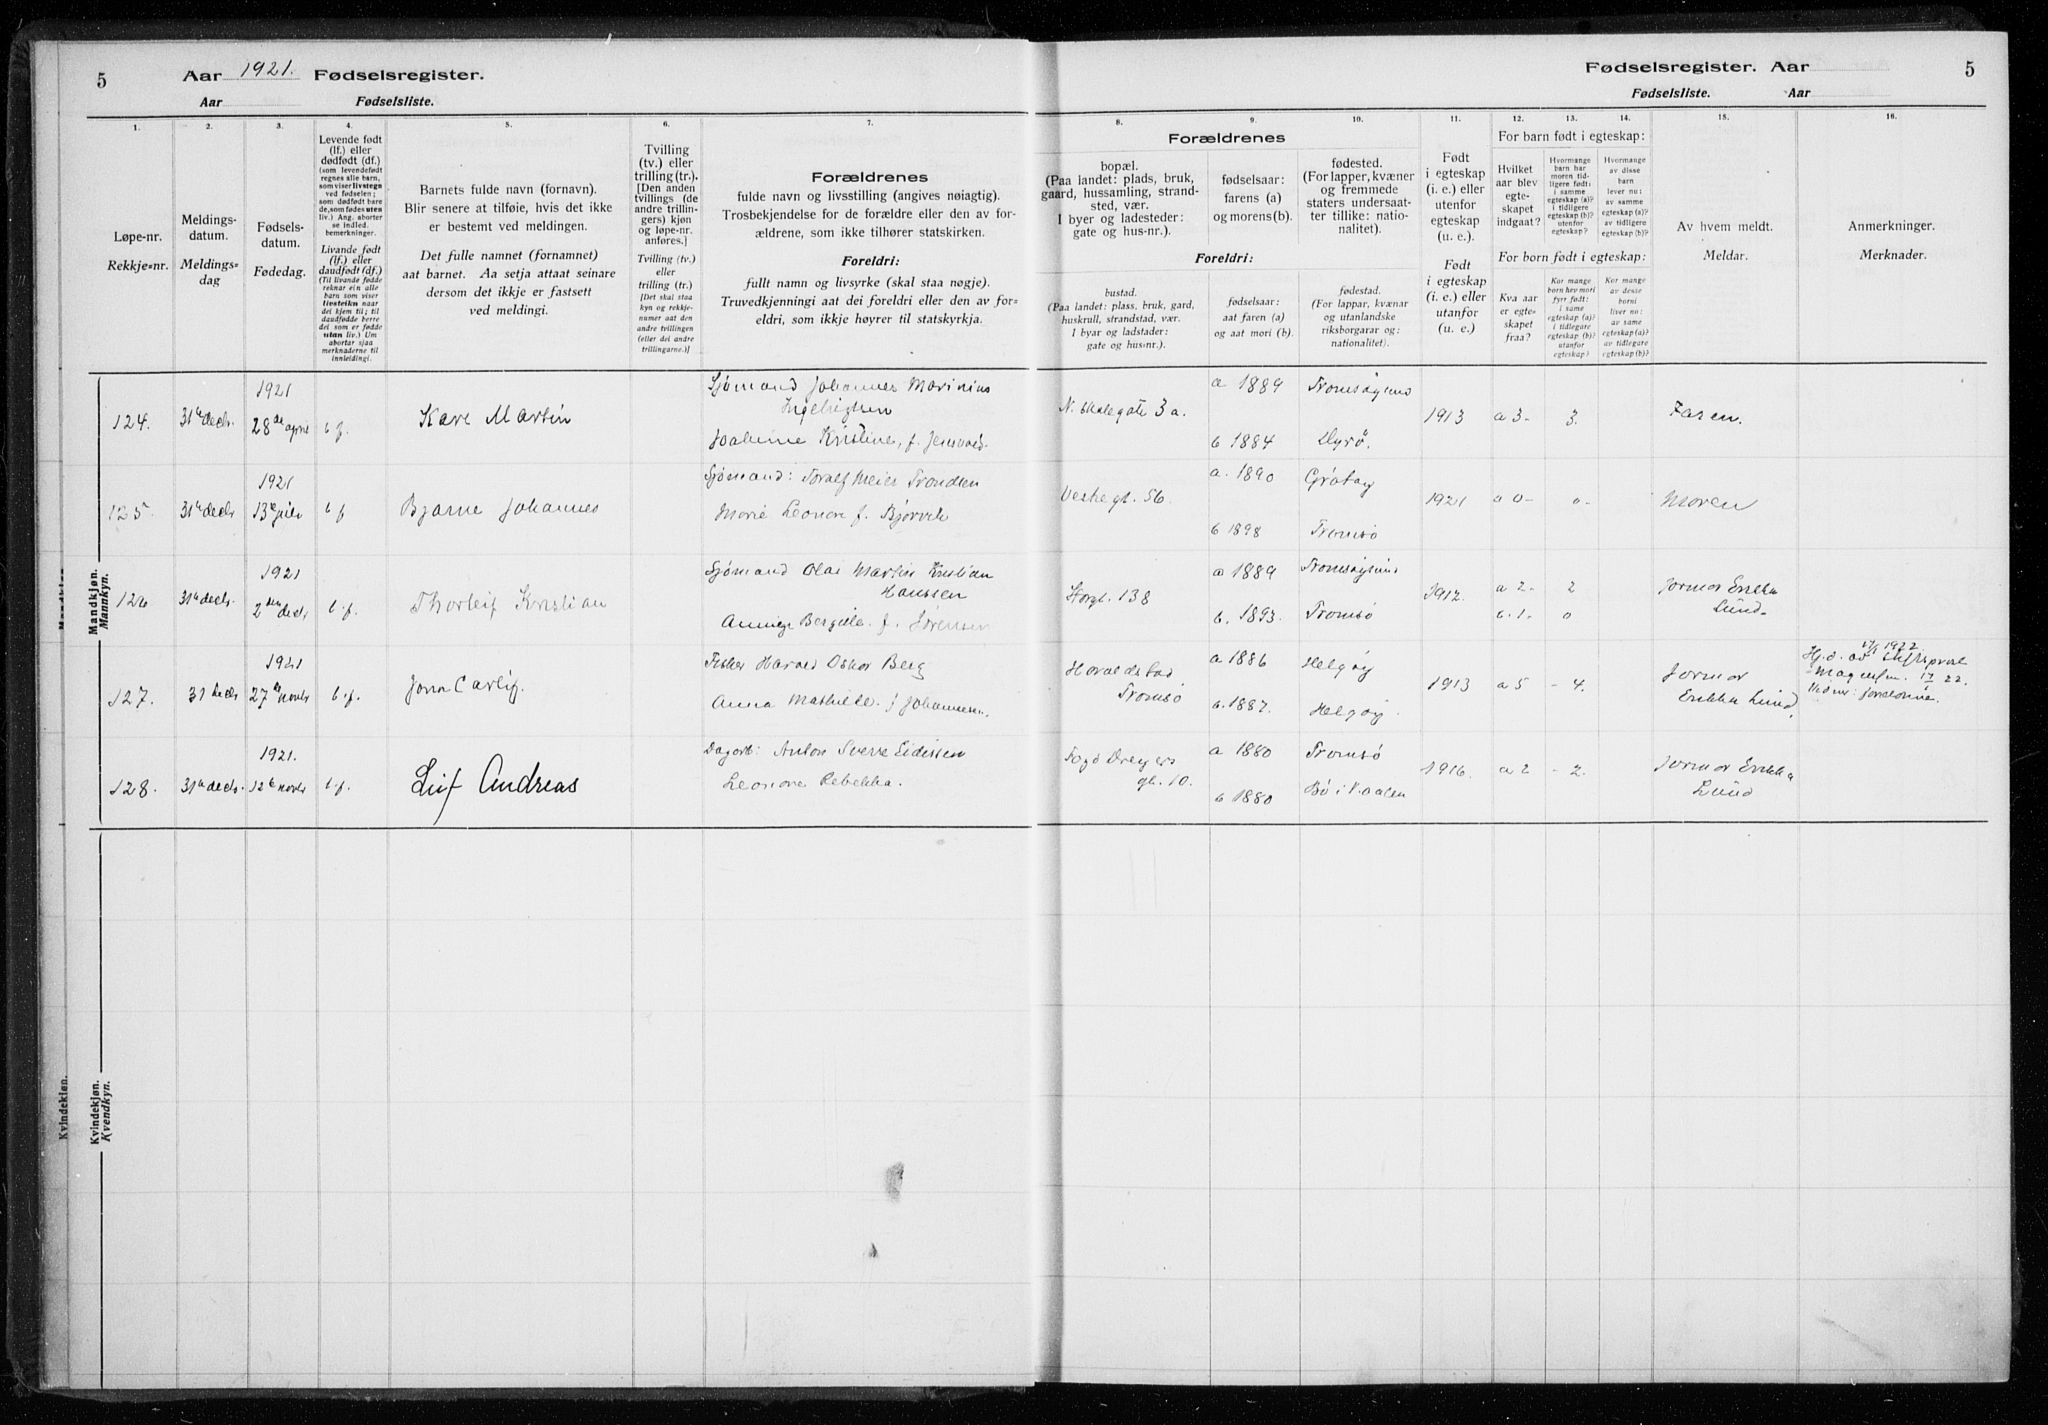 5 Aar 1921. Fødselsregister.
Aar Fødselsliste.
Fødselsregister. Aar 5
Fødselsliste. Aar
1. 2. 3. 4. 5. 6. 7.
Løpe-nr.
Rekkje-nr.
Meldings-
datum.
Meldings-
dag
Fødsels-
datum.
Fødedag.
Levende født
(lf.) eller
dødfødt (df.)
(som levendefødt
regnes alle barn,
som viser livstegn
ved fødselen;
som dødfødt bare
de, som fødes uten
liv.) Ang. aborter
se indled.
bemerkninger.
Livande født
(lf.) eller
daudfødt (df.)
(Til livande fødde
reknar ein alle
barn som viser
livsteikn naar
dei kjem til; til
daudfødde berre
dei som er fødde
utan liv.) Um
abortar sjaa
merknaderne til
innleidingi.
Barnets fulde navn (fornavn).
Blir senere at tilføie, hvis det ikke
er bestemt ved meldingen.
Det fulle namnet (fornamnet)
aat barnet. Aa setja attaat seinare
dersom det ikkje er fastsett
ved meldingi.
Tvilling
(tv.) eller
trilling (tr.).
[Den anden
tvillings (de
andre trillin-
gers) kjøn
og løpe-nr.
anføres.]
Tvilling (tv.)
eller
trilling (tr.)
[Det skal staa
kyn og rekkje-
numer aat den
andre tvillingen
(eller dei andre
trillingarne.)]
Forældrenes
fulde navn og livsstilling (angives nøiagtig).
Trosbekjendelse for de forældre eller den av for-
ældrene, som ikke tilhører statskirken.
Foreldri:
fullt namn og livsyrke (skal staa nøgje).
Truvedkjenningi aat dei foreldri eller den av for-
eldri, som ikkje høyrer til statskyrkja.
8. 9. 10. 11. 12. 13. 14. 15. 16.
Forældrenes
bopæl.
(Paa landet: plads, bruk,
gaard, hussamling, strand-
sted, vær.
I byer og ladesteder:
gate og hus-nr.).
fødselsaar:
farens (a)
og morens (b).
fødested.
(For lapper, kvæner
og fremmede
staters undersaat-
ter tillike: natio-
nalitet).
Foreldri:
bustad.
(Paa landet: plass, bruk, gard,
huskrull, strandstad, vær.
I byar og ladstader:
gate og hus-nr.).
fødselsaar:
aat faren (a)
og aat mori (b).
fødestad.
(For lappar, kvænar
og utanlandske
riksborgarar og:
nationalitet).
Født
i egteskap
(i. e.) eller
utenfor
egteskap
(u. e.).
Født
i egteskap
(i. e.) eller
utanfor
(u. e.)
For barn født i egteskap:
Hvilket
aar blev
egte-
skapet
indgaat?
Hvormange
barn har
moren tid-
ligere født:
i samme
egteskap (a)?
i tidligere
egteskap (b)?
utenfor
egteskap?
Hvormange
av disse
barn
lever nu:
av samme
egteskap (a)?
av tidligere
egteskap (b)?
For born født i egteskap:
Kva aar
er egte-
skapet
fraa?
Kor mange
born hev mori
fyrr født:
i same
egteskap (a)?
i tidlegare
egteskap (b)?
utanfor
egteskap?
Kor mange
av desse
borni
liver no:
av same
egteskap (a)?
av tidlegare
egteskap (b)?
Av hvem meldt.
Meldar.
Anmerkninger.
Merknader.
Mandkjøn.
Mannkyn.
124. 31te decbr. 1921 28de april l.f. Kare Martin
Sjømand Johannes Marinius
Ingebrigtsen
Joakime Kristine, f.
N. Skolegate 3 a. a 1889 Tromsøysund
b 1884 Dyrø. 1913 a 3 - 3. Faren.
125. 31te decbr 1921 13de juli l.f Bjarne Johannes
Sjømand: Toralf Meier Trondsen
Marie Leonore f. Bjørvik
Vestregt. 56. a. 1890 Grøtøy
b 1898 Tromsø 1921 a 0 - 0 - Moren
126 31te decbr. 1921 2den decbr l.f. Thorleif Kristian
Sjømand Olai Martin Kristian
Hanssen
Bergitte f. Jørensen
138 a 1889 Tromsøysund
b. 1893. Tromsø 1912. a 2 - 2
b. 1 - 0
Jormor Erikka
Lund
127. 31te decbr 1921 27de novbr l.f. Jonn Carlif.
Fisker Harald Oskar Berg
Anna Mathilde f Johannesen.
Haraldstad
Tromsø a 1886 Helgøy
b. 1887. Helgøy. 1913 a 5 - 4.
Jormor
Erikka Lund,
17/1 1922
Hj.d. av
128. 31te decbr. 1921. 12te novbr l.f. Leif Andreas
Dagarb: Anton Sverre Eidissen
Leonore Rebekka.
Fogd Dreyers
gt. 10. a 1880 Tromsø
b 1880 Bø i V.aalen 1916. a 2 - 2.
Jormor Erikka
Lund
Kvindekjøn.
Kvendkyn.
Kvindekjøn.